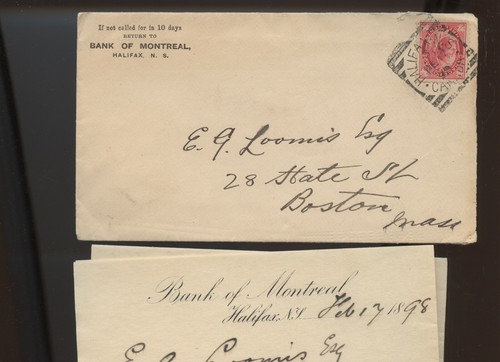 If not called for in 10 days
RETURN TO
BANK OF MONTREAL,
HALIFAX, N. S.
HALIFAX
E. G. Loomis Esq
28 State St
Boston
Mass
Bank of Montreal
Halifax N.S. Feb 17 1898
E. G. Loomis Esq